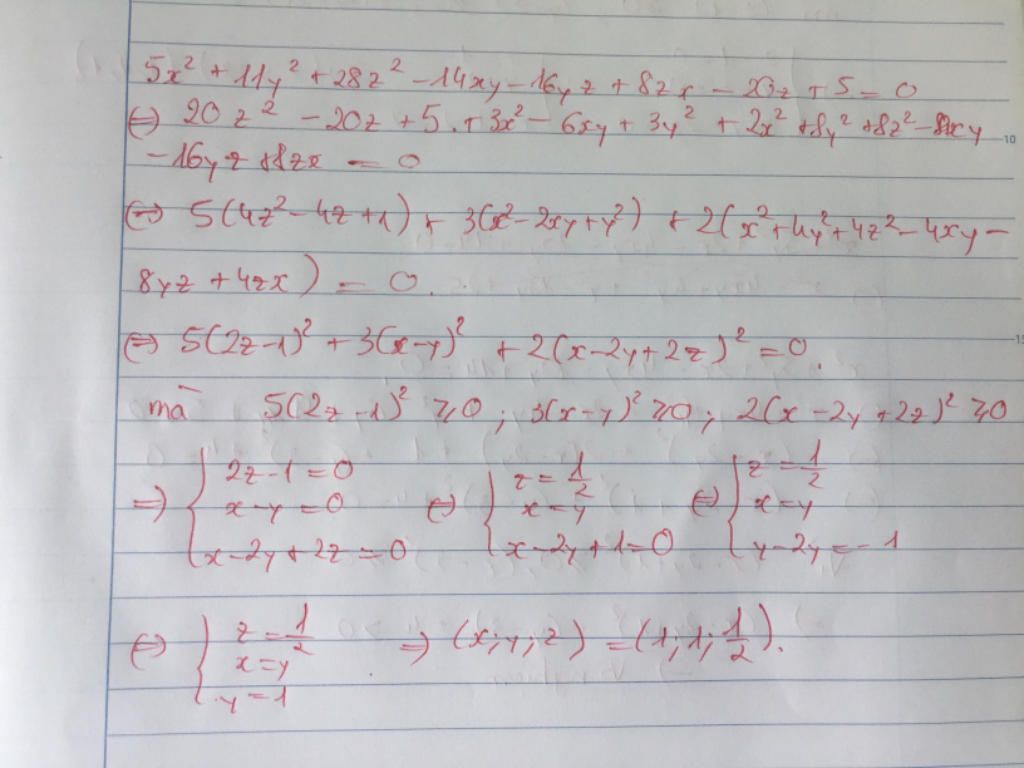 5x² + 11y² + 28z² - 14xy - 16yz + 8zx - 20z + 5 = 0
⇔ 20z² - 20z + 5 + 3x² - 6xy + 3y² + 2x² + 8y² + 8z² - 8xy
- 16yz + 8zx = 0
⇔ 5(4z² - 4z + 1) + 3(x² - 2xy + y²) + 2(x² + 4y² + 4z² - 4xy -
8yz + 4zx) = 0.
⇔ 5(2z - 1)² + 3(x - y)² + 2(x - 2y + 2z)² = 0.
mà 5(2z - 1)² ≥ 0 ; 3(x - y)² ≥ 0 ; 2(x - 2y + 2z)² ≥ 0
⇒ { 2z - 1 = 0 ⇔ { z = 1/2 ⇔ { z = 1/2
x - y = 0 x = y x = y
x - 2y + 2z = 0 x - 2y + 1 = 0 y - 2y = - 1
⇔ { z = 1/2 ⇒ (x; y; z) = (1; 1; 1/2).
x = y
y = 1
10
15